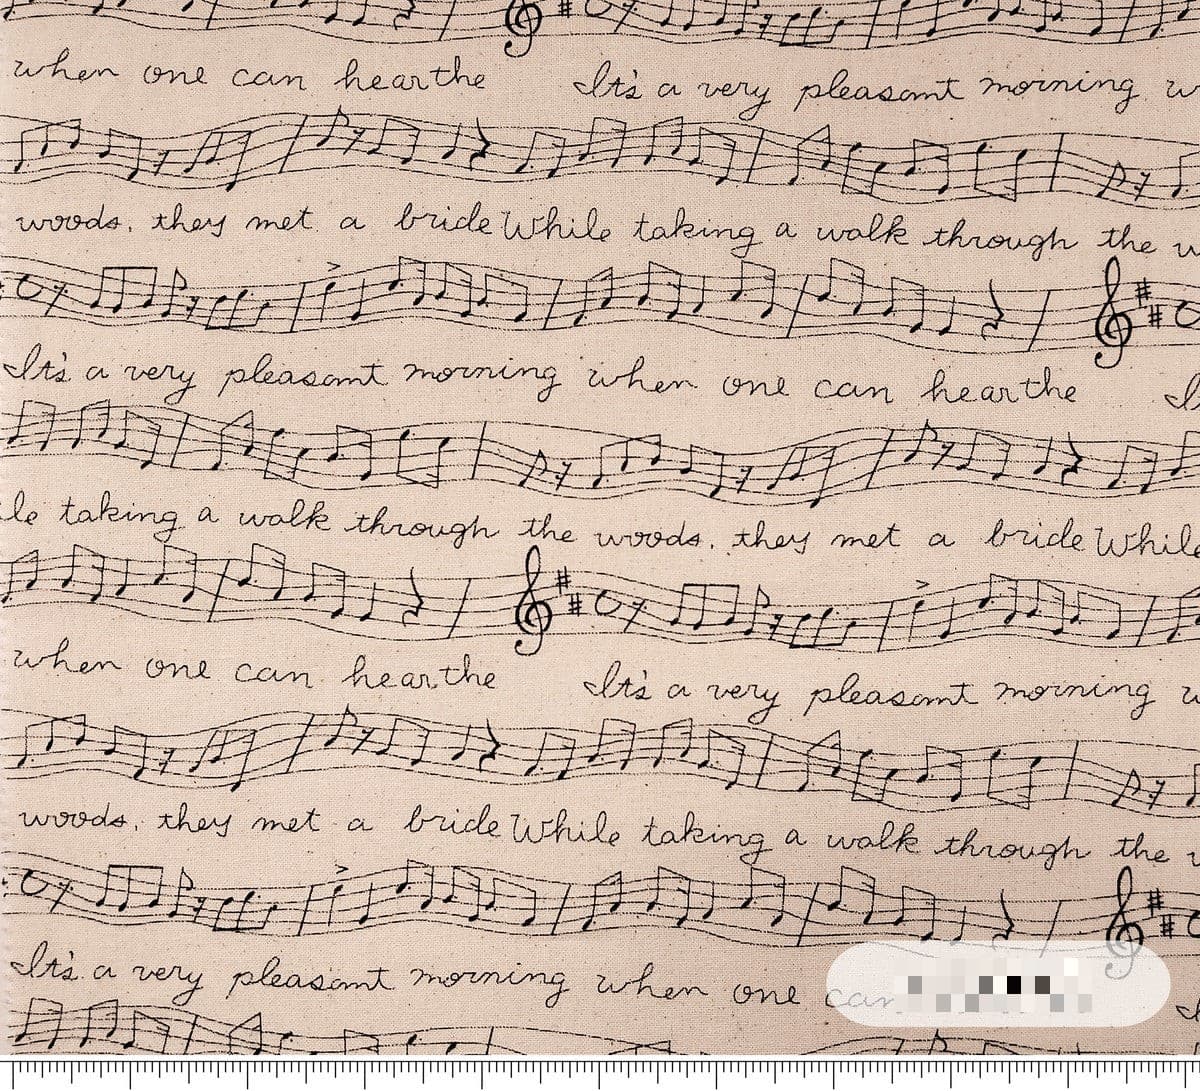 when one can hearthe It's a very pleasant morning
woods, they met a bride While taking a walk through the
It's a very pleasant morning when one can hearthe
taking a walk through the woods, they met a bride While
when one can hearthe It's a very pleasant morning
woods, they met a bride While taking a walk through the
It's a very pleasant morning when one can